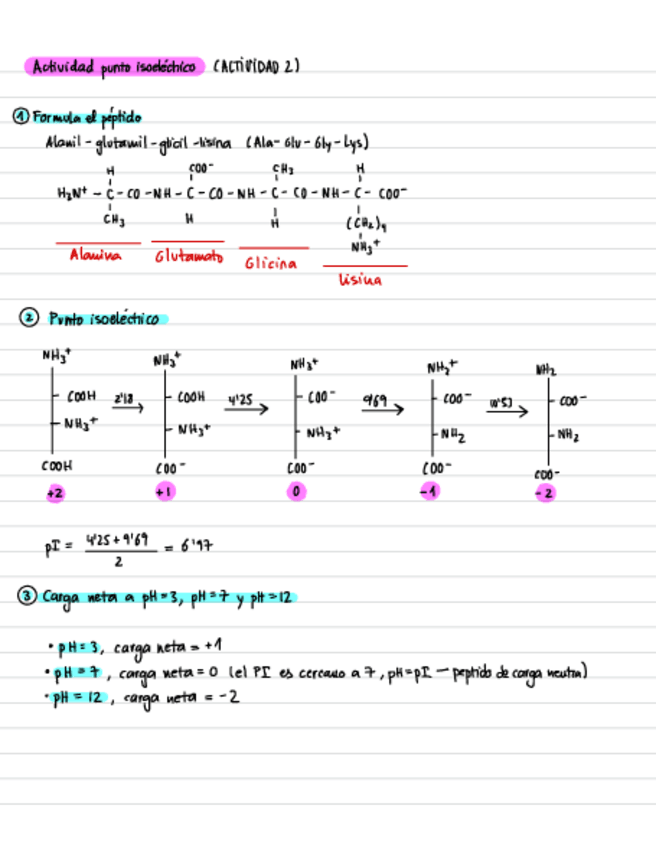 Actividad punto isoeléctrico (ACTIVIDAD 2)
① Formula el péptido
Alanil-glutamil-glicil-lisina (Ala-Glu-Gly-Lys)
H COO⁻ CH₃ H
H₃N⁺ - C - CO - NH - C - CO - NH - C - CO - NH - C - COO⁻
CH₃ H H (CH₂)₄
NH₃⁺
Alanina Glutamato Glicina Lisina
② Punto isoeléctrico
NH₃⁺ NH₃⁺ NH₃⁺ NH₃⁺ NH₂
COOH 2'18 COOH 4'25 COO⁻ 9'69 COO⁻ 10'53 COO⁻
NH₃⁺ NH₃⁺ NH₃⁺ NH₂ NH₂
COOH COO⁻ COO⁻ COO⁻ COO⁻
+2 +1 0 -1 -2
pI = 4'25 + 9'69 / 2 = 6'97
③ Carga neta a pH=3, pH=7 y pH=12
• pH=3, carga neta = +1
• pH=7, carga neta = 0 (el PI es cercano a 7, pH=pI - peptido de carga neutra)
• pH = 12, carga neta = -2